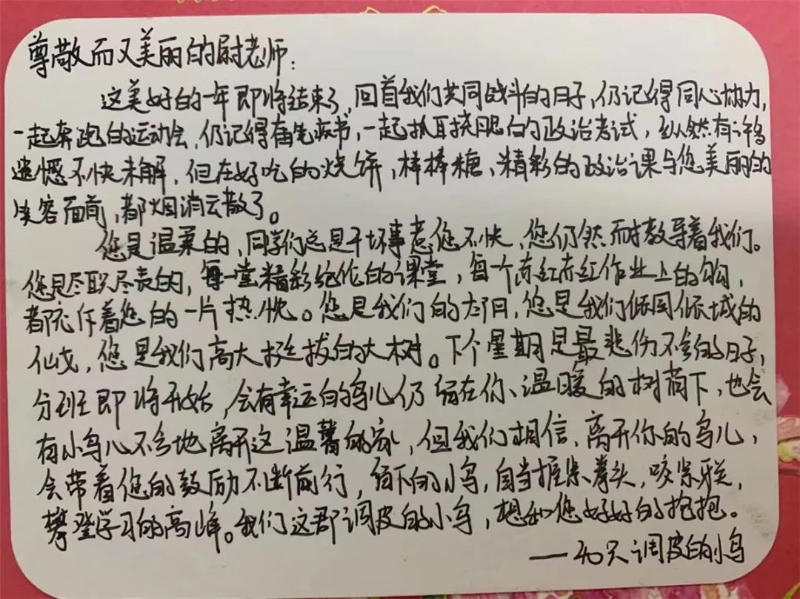 尊敬而又美丽的尉老师:
这美好的一年即将结束了,回首我们共同战斗的日子,仍记得同心协力,
一起奔跑的运动会,仍记得奋笔疾书,一起抓耳挠腮的政治考试,纵然有许多
遗憾不快未解,但在好吃的烧饼,棒棒糖、精彩的政治课与您美丽的
笑容面前,都烟消云散了。
您是温柔的,同学们总是干坏事惹您不快,您仍然耐教导着我们。
您是尽职尽责的,每一堂精彩绝伦的课堂,每个赤红赤红作业上的勾勾,
都饱含着您的一片热忱。您是我们的太阳,您是我们倾国倾城的
仙女,您是我们高大挺拔的大树。下个星期是最悲伤不舍的日子,
分班即将开始,会有幸运的鸟儿仍留在你、温暖的树荫下,也会
有小鸟儿不舍地离开这温馨的家,但我们相信,离开你的鸟儿,
会带着您的鼓励不断前行,留下的小鸟,自当握紧拳头,咬紧牙关,
攀登学习的高峰。我们这群调皮的小鸟,想和您好好的抱抱。
——40只调皮的小鸟